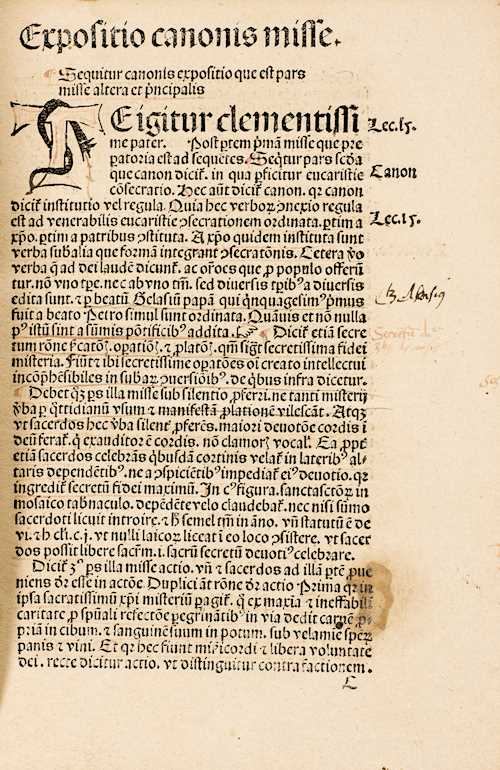 Expositio canonis misse.
Sequitur canonis expositio que est pars
misse altera et p̃ncipalis
TE igitur clementissi
me pater. Post ꝑtem pͥmã misse que pre
paratoria est ad sequẽtes. Seqͥtur pars scd̃a
que canon diciť. in qua ꝑficitur eucaristie
cõsecratio. Hec aũt diciť canon. qꝛ canon
diciť institutio vel regula. Quia hec verboꝝ ꝯnexio regula
est ad venerabilis eucaristie ꝯsecrationem ordinata. ꝑtim a
xp̃o. ꝑtim a patribus ꝯstituta. A xp̃o quidem instituta sunt
verba sub̃alia que formã integrant ꝯsecratõnis. Cetera ṽo
verba q̃ ad dei laudẽ dicunť. ac or̃oes que ꝓ populo offerũ
tur. nõ vno tꝑe. nec ab vno tm̃. sed diuersis tꝑib⁹ a diuersis
edita sunt. ⁊ ꝑ beatũ Gelasiũ papã qui qͥnquagesim⁹pmus
fuit a beato Petro simul sunt ordinata. Quãuis et nõ nulla
p⁹ istũ sint a sũmis põtificib⁹ addita. Diciť etiã secre
tum rõne
misteria. Fiũt ⁊ ibi secretissime oꝑatões oĩ creato intellectui
incõphẽsibiles in subaꝝ ꝯuersiõib⁹. de qͥbus infra dicetur.
Debet qͦꝫ ꝑs illa misse sub silentio ꝓferri. ne tanti misterij
ṽba ꝑ qͦttidianũ vsum ⁊ manifestã ꝓlationẽ vilescãt. Atqꝫ
vt sacerdos hec ṽba silent ꝓferẽs. maiori deuotõe cordis ĩ
deũ ferať. qͥ exauditor ẽ cordis. nõ clamorꝭ vocal. Ea ꝓpt
etiã sacerdos celebrãs qͥbusdã cortinis velať in laterib⁹ al-
taris dependẽtib⁹. ne a ꝯspiciẽtib⁹ impediať ei⁹ deuotio. qꝛ
ingrediť secretũ fidei maximũ. In c⁹ figura. sancta sctõꝝ in
mosaico tabnaculo. depẽdẽte velo claudebať. nec nisi sũmo
sacerdoti licuit introire. ⁊ semel tm̃ in ãno. vñ statutũ ẽ de
vi. ⁊ cl̃i. c. j. vt nulli laicoꝝ liceat ĩ eo loco ꝯsistere. vt sacer
dos possit libere sacrm̃. i. sacrũ secretũ deuoti⁹ celebrare.
Diciť ꝫ⁹ ꝑs illa misse actio. vñ ⁊ sacerdos ad illã ꝑtẽ ꝓue
niens dr̃ esse in actõe. Duplici aũt rõne dr̃ actio Prima qꝛ in
ipsa sacratissimũ xp̃i misteriũ pagiť. qͥ ex maxĩa ⁊ ineffabili
caritate ꝓ spũali refectõe ꝑegrinãtib⁹ in via dedit carnẽ ꝓ
priã in cibum. ⁊ sanguinẽ suum in potum. sub velamie speꝝ
panis ⁊ vini. Et qꝛ hec fiunt misericordi ⁊ libera voluntate
dei. recte dicitur actio. vt distinguitur contra factionem.
Lec.15.
Canon
Lec.15.